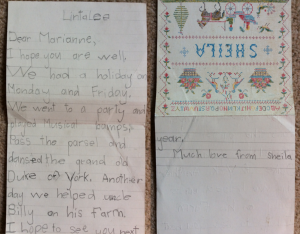 Dear Marianne,
I hope you are well
We had a holiday on
Monday and Friday.
We went to a party and
played Musical bumps
Pass the parsel and
dansed the grand old
Duke of York. Another
day we helped uncle
Billy on his farm.
I hope to see you next
SHEILA
year.
Much love from sheila